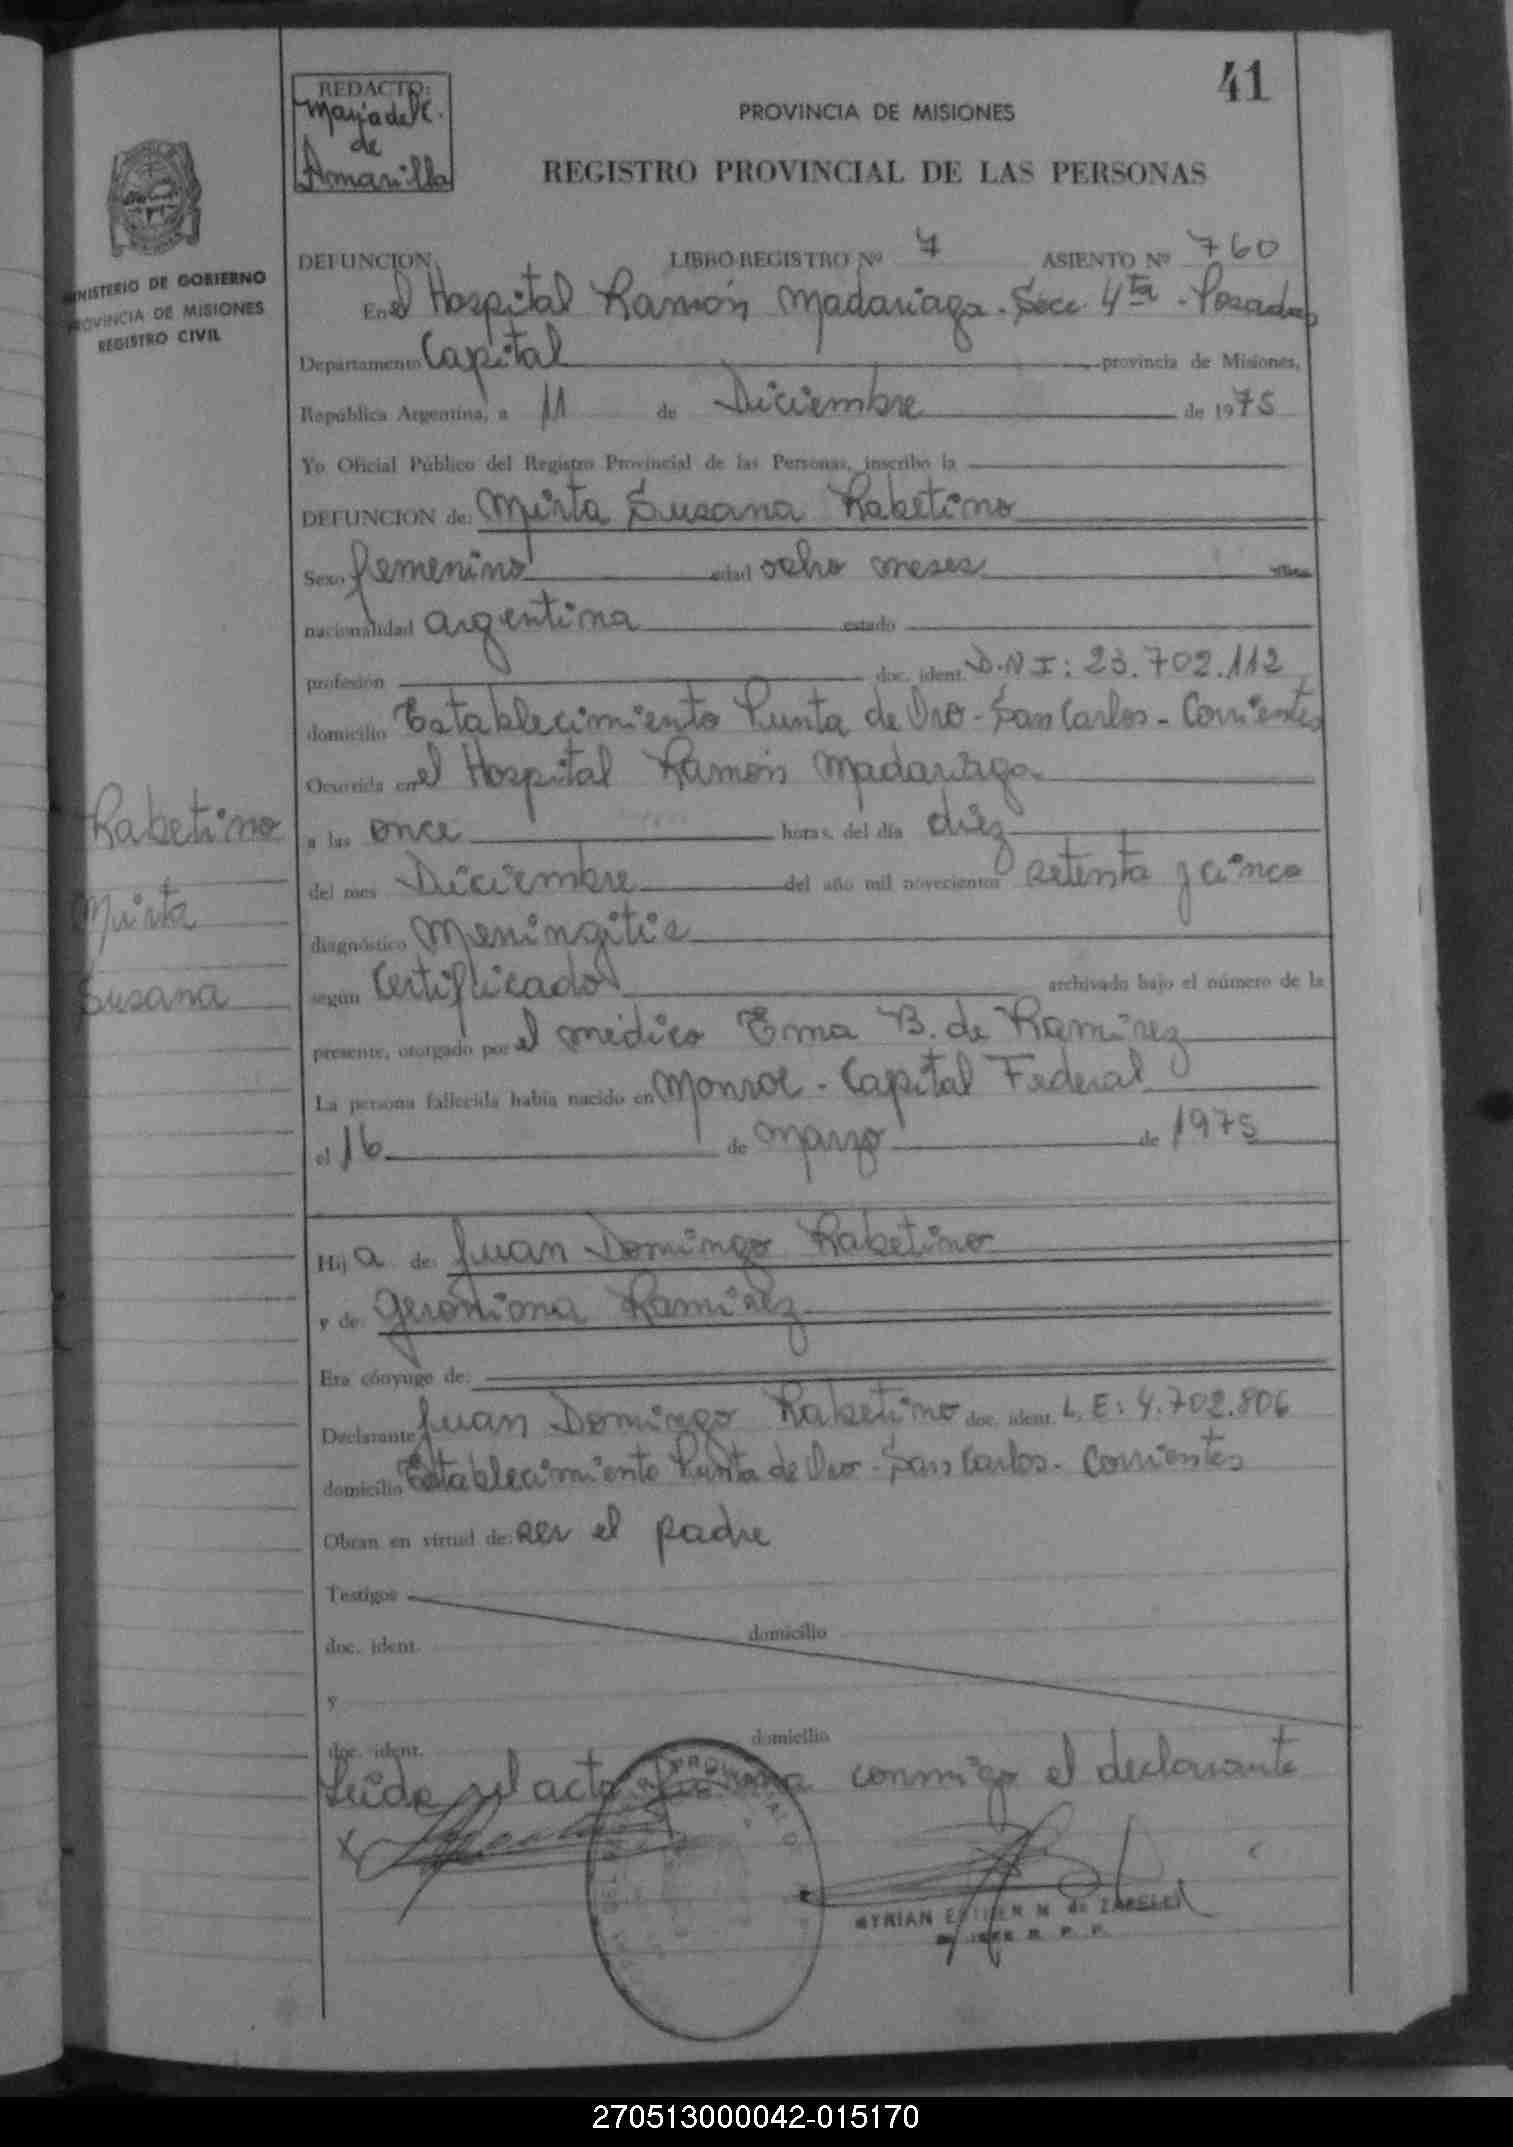 41
REDACTO:
Maria del C.
de
Amarilla
PROVINCIA DE MISIONES
REGISTRO PROVINCIAL DE LAS PERSONAS
MINISTERIO DE GOBIERNO
PROVINCIA DE MISIONES
REGISTRO CIVIL
DEFUNCION LIBRO-REGISTRO Nº 7 ASIENTO Nº 760
En el Hospital Ramón Madariaga - Secc. 4ta - Posadas
Departamento Capital provincia de Misiones,
República Argentina, a 11 de Diciembre de 1975
Yo Oficial Público del Registro Provincial de las Personas, inscribo la
DEFUNCION de: Mirta Susana Rabetino
Sexo femenino edad ocho meses
nacionalidad argentina estado
profesión doc. ident. D.N.I: 23.702.112
domicilio Establecimiento Punta de Oro - San Carlos - Corrientes
Ocurrida en el Hospital Ramón Madariaga
a las once horas, del día diez
del mes Diciembre del año mil novecientos setenta y cinco
diagnóstico Meningitis
según Certificado archivado bajo el número de la
presente, otorgado por el médico Ema B. de Ramirez
La persona fallecida había nacido en Monroe - Capital Federal
el 16 de marzo de 1975
Rabetino
Mirta
Susana
Hij a de: Juan Domingo Rabetino
y de: Geronima Ramirez
Era cónyuge de:
Declarante Juan Domingo Rabetino doc. ident. L.E: 4.702.806
domicilio Establecimiento Punta de Oro - San Carlos - Corrientes
Obran en virtud de: ser el padre
Testigos
doc. ident. domicilio
y
doc. ident. domicilio
Leida el acta firma conmigo el declarante
X
MYRIAN ESTHER M. de
R. P. P.
270513000042-015170